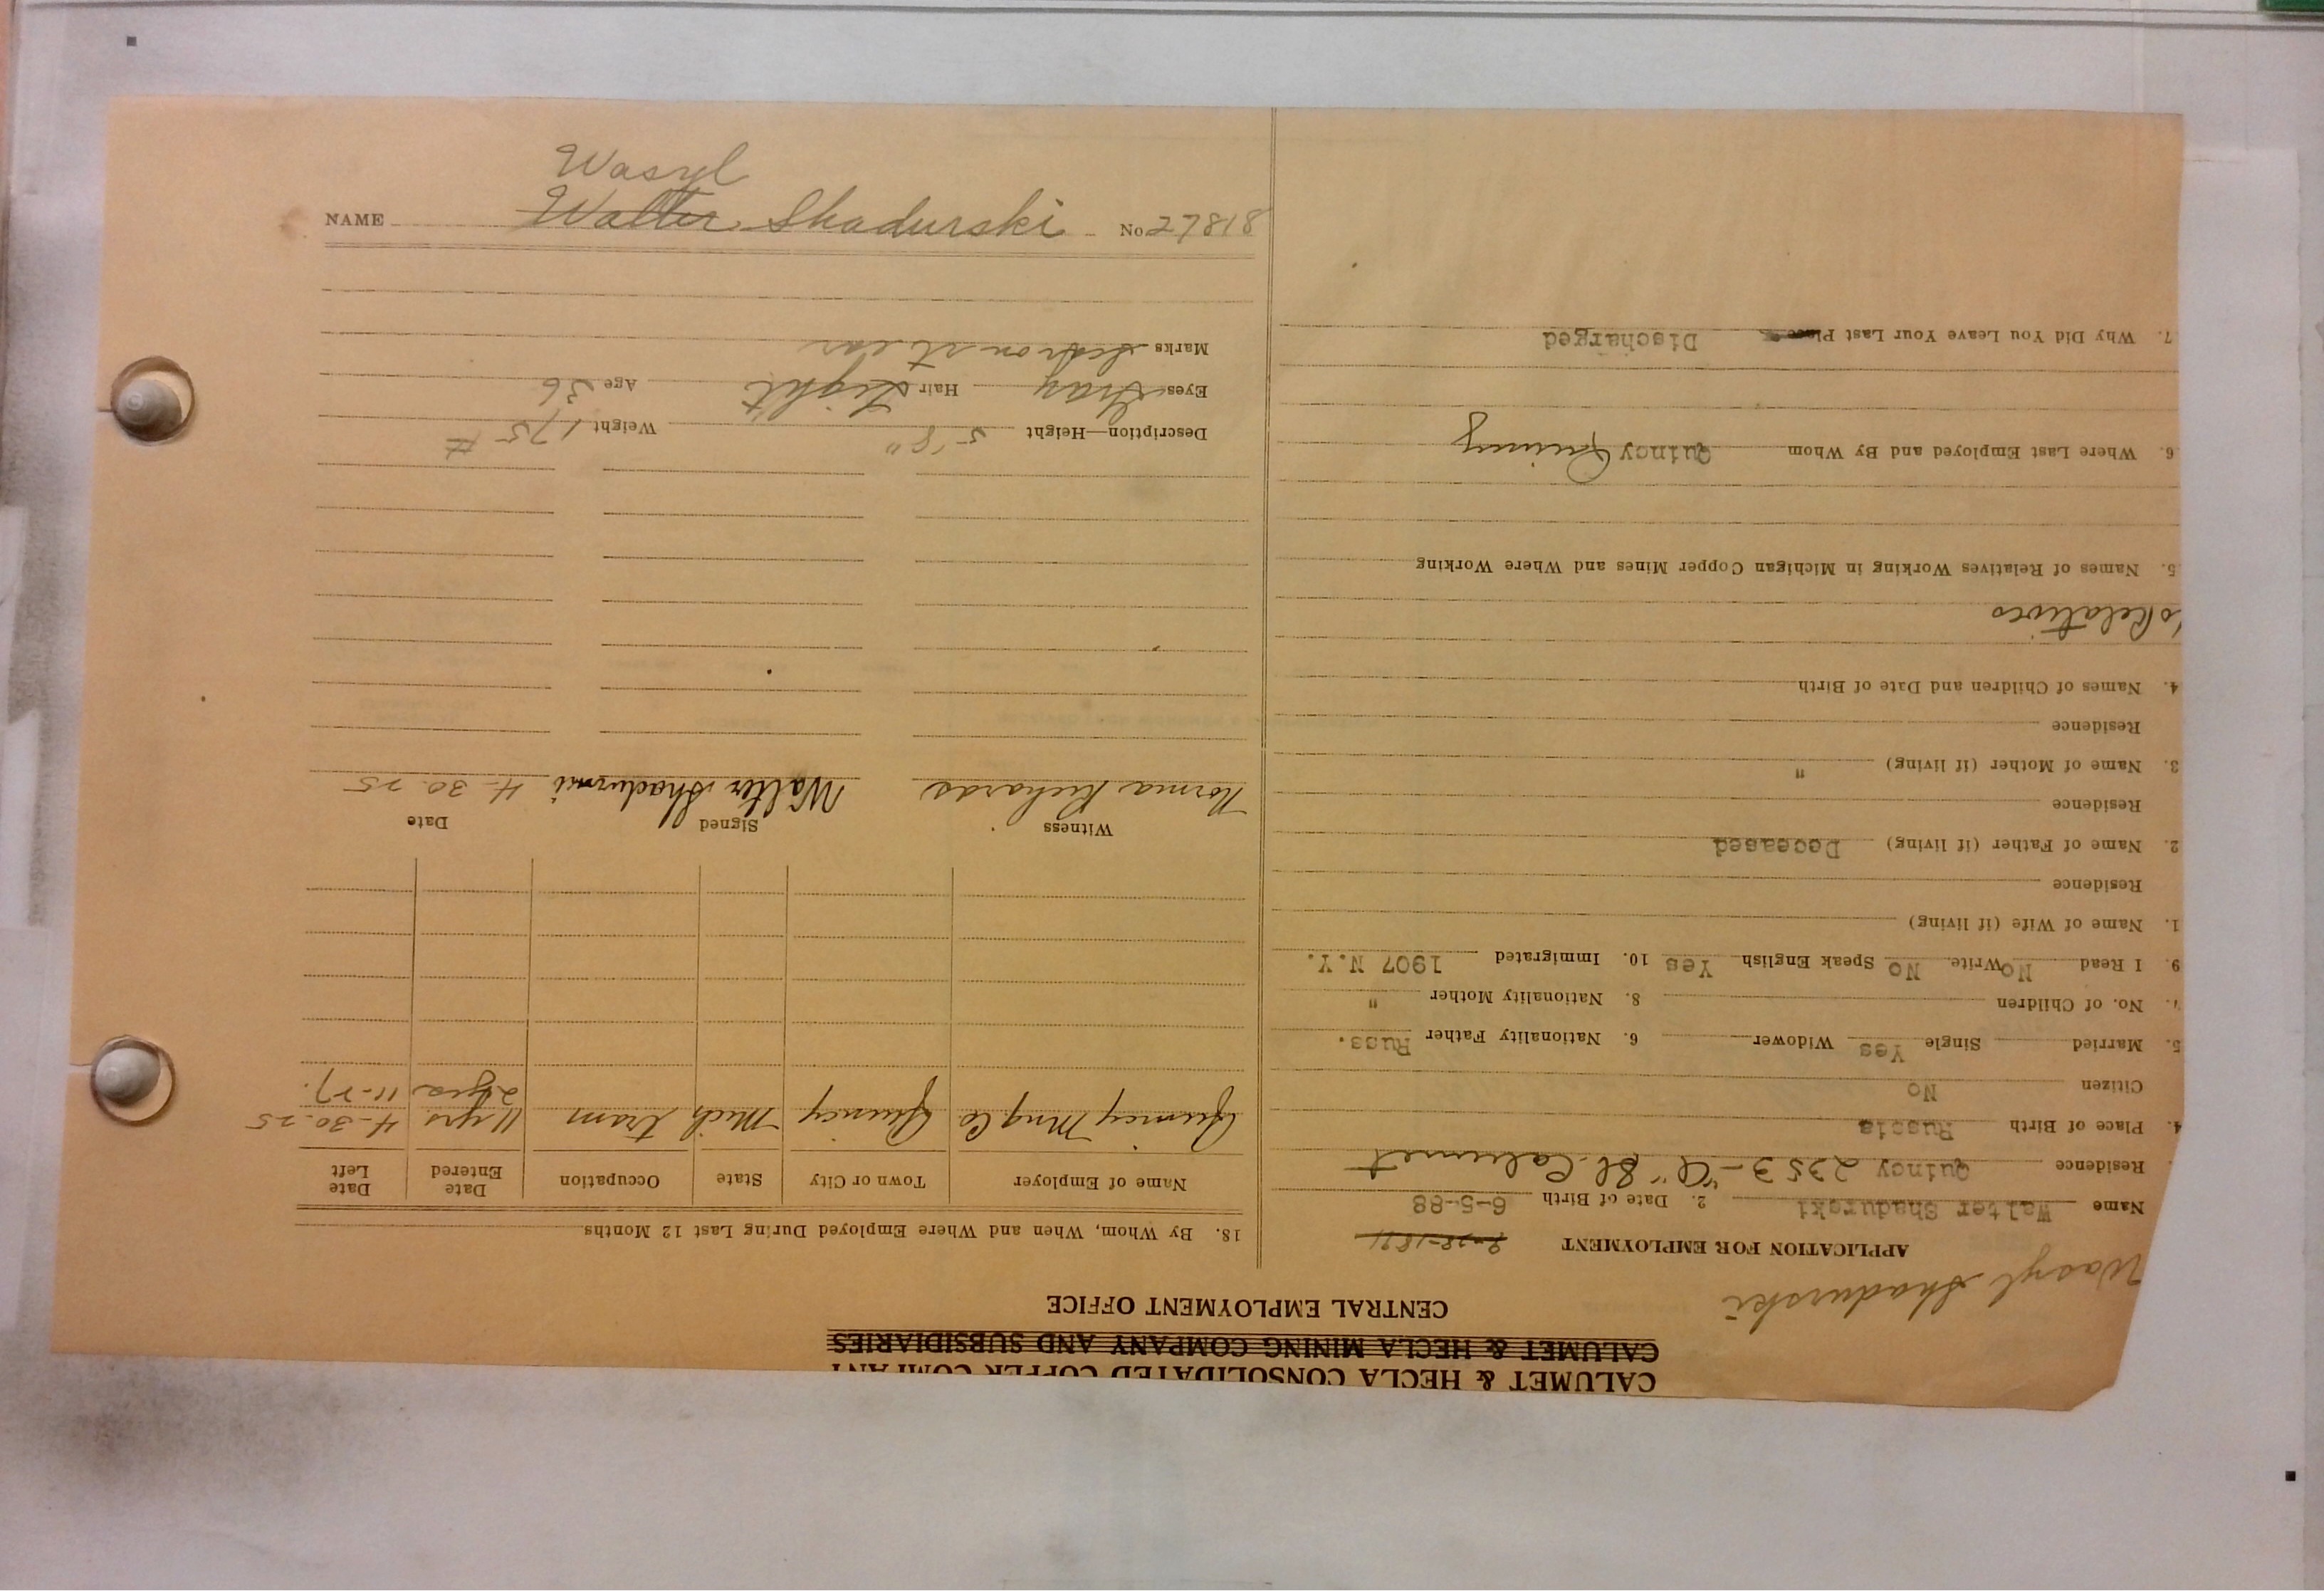 CALUMET & HECLA CONSOLIDATED COPPER COMPANY
CALUMET & HECLA MINING COMPANY AND SUBSIDIARIES
CENTRAL EMPLOYMENT OFFICE
Wasyl Shadurski
APPLICATION FOR EMPLOYMENT
Name Walter Shadurski 2. Date of Birth 6-5-88
Residence Quincy 2353-"C" St. Calumet
4. Place of Birth Russia
Citizen No
5. Married Single Yes Widower 6. Nationality Father Russ.
7. No. of Children 8. Nationality Mother "
9. I Read No Write No Speak English Yes 10. Immigrated 1907 N.Y.
1. Name of Wife (if living)
Residence
2. Name of Father (if living) Deceased
Residence
3. Name of Mother (if living) "
Residence
4. Names of Children and Date of Birth
Relatives
5. Names of Relatives Working in Michigan Copper Mines and Where Working
6. Where Last Employed and By Whom Quincy Quincy
7. Why Did You Leave Your Last Place Discharged
18. By Whom, When and Where Employed During Last 12 Months
Name of Employer Town or City State Occupation Date Entered Date Left
Quincy Mng Co Quincy Mich tram 11 yrs. 4-30-25
2 yrs 11-27.
Witness Signed Date
Norma Richards Walter 4-30-25
Description—Height 5'8" Weight 175 #
Eyes Gray Hair Light Age 36
Marks on rt ear
Wasyl
NAME Walter Shadurski No. 27818